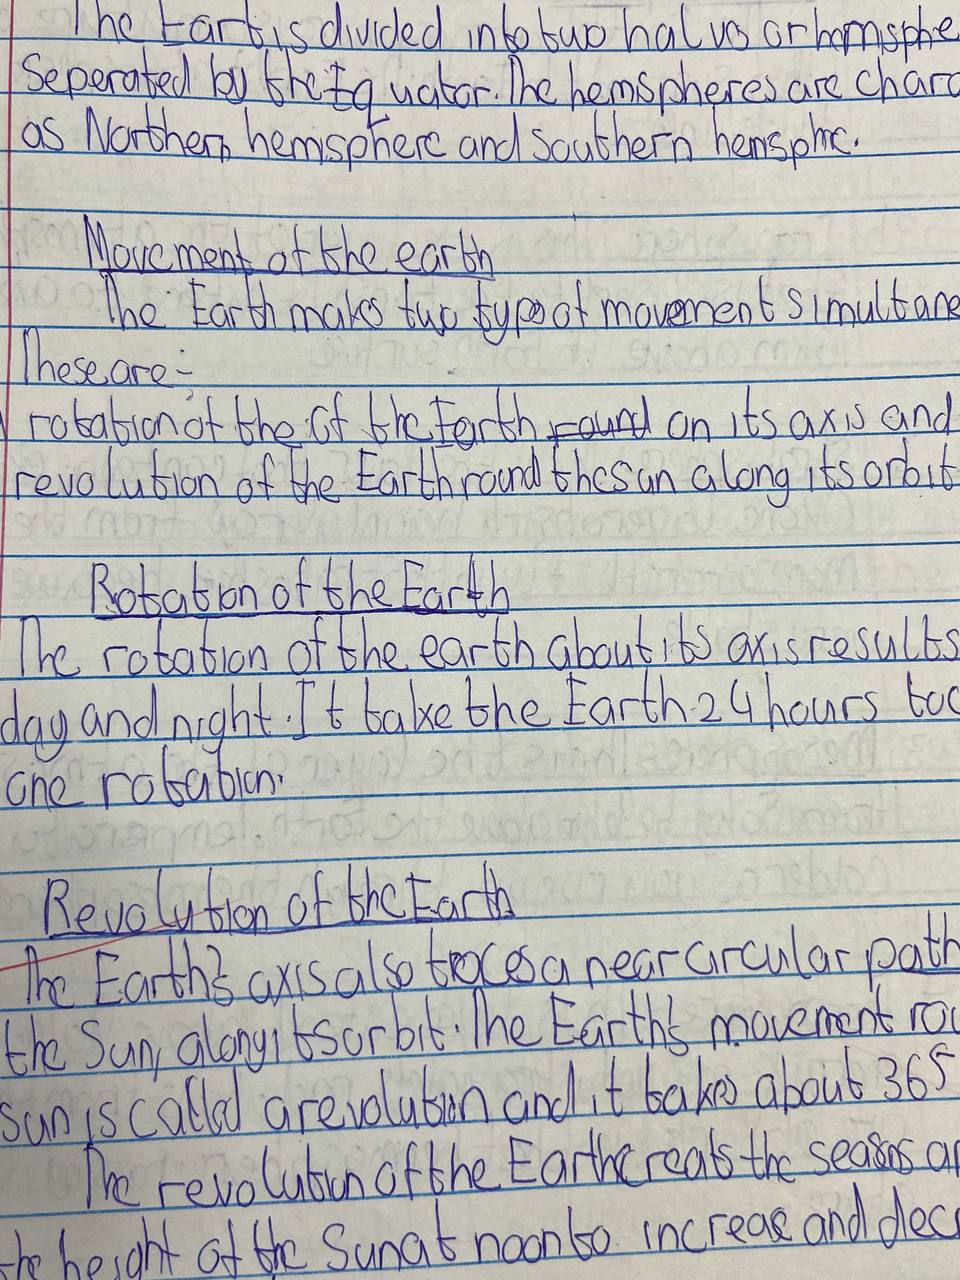 The Eart is divided into two halvs or hemsphe
Seperated by the Equator. The hemispheres are charc
as Northern hemisphere and Southern hemsphe.
Movement of the earth
The Earth makes two types of movement simultane
These are:-
rotation of the of the Earth round on its axis and
revolution of the Earth round the sun along its orbit
Rotation of the Earth
The rotation of the earth about its axis results
day and night. It take the Earth 24 hours to c
one rotation.
Revolution of the Earth
The Earth's axis also traces a near circular path
the Sun, along its orbit. The Earth's movement rou
sun is called a revolution and it takes about 365
The revolution of the Earth creats the seasons an
the height of the Sun at noon to increas and decr